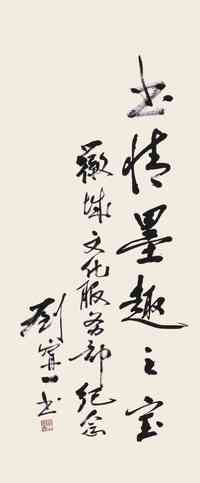 书情墨趣之室
徽城文化服务部纪念
刘宁一书